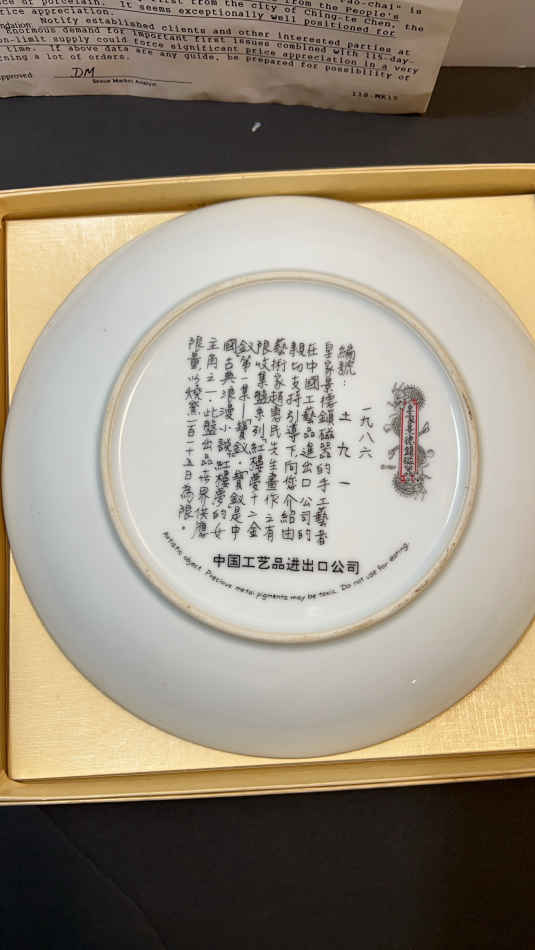 rst from the People's
ce of porcelain.
tist from the city of Ching-te Chen, the
ice appreciation. It seems exceptionally well positioned for
Notify established clients and other interested parties at
Enormous demand for important first issues combined with 115-day-
on-limit supply could force significant price appreciation in a very
time. If above data are any guide, be prepared for possibility of
ning a lot of orders.
pproved DM
Issue Market Analyst
118-MK15
一九八六
編號: 土九一
皇家景德鎮磁器的手工藝者
在中國工藝品進出口公司的
親切支持引導下,向您介紹由
藝術家趙惠民先生畫作之有
限收集盤系列“紅樓夢十二金
釵”第一集—“寶釵”。寶釵是中
國古典浪漫小說紅樓夢的女
主角之一。此盤出品世界供應
限量以燒窯一百一十五日為限。
中国工艺品进出口公司
Artistic object. Precious metal pigments may be toxic. Do not use for eating.